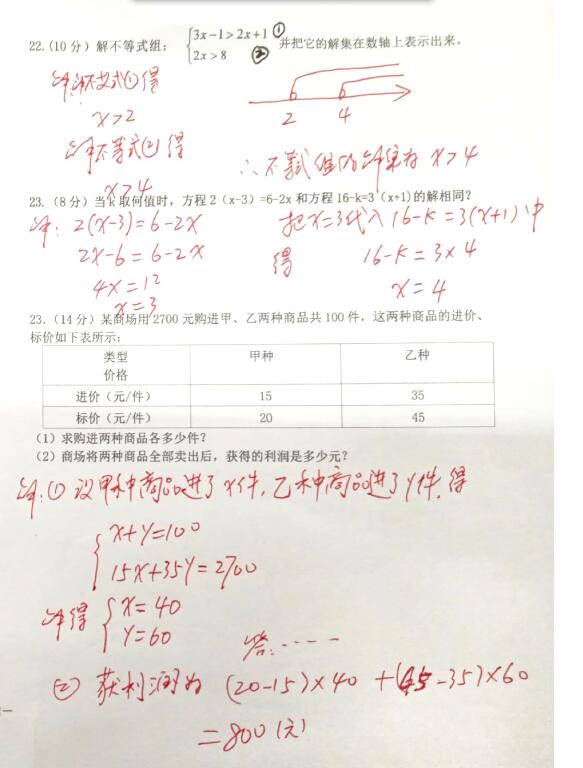 22.(10 分) 解不等式组: {3x-1>2x+1 ① 2x>8 ② 并把它的解集在数轴上表示出来。
解不等式① 得
x>2
解不等式② 得
x>4
2 4
∴不等式组的解集为 x>4
23.(8 分) 当 k 取何值时, 方程 2(x-3)=6-2x 和方程 16-k=3(x+1)的解相同?
解: 2(x-3)=6-2x
2x-6=6-2x
4x=12
x=3
把x=3代入 16-k=3(x+1)中
得 16-k=3×4
x=4
23.(14 分) 某商场用 2700 元购进甲、乙两种商品共 100 件, 这两种商品的进价、
标价如下表所示:
类型 甲种 乙种
价格
进价(元/件) 15 35
标价(元/件) 20 45
(1) 求购进两种商品各多少件?
(2) 商场将两种商品全部卖出后, 获得的利润是多少元?
解:① 设甲种商品进了x件,乙种商品进了y件,得
{x+y=100
15x+35y=2700
解得 {x=40
y=60
答:……
② 获利润为 (20-15)×40+(45-35)×60
=800(元)